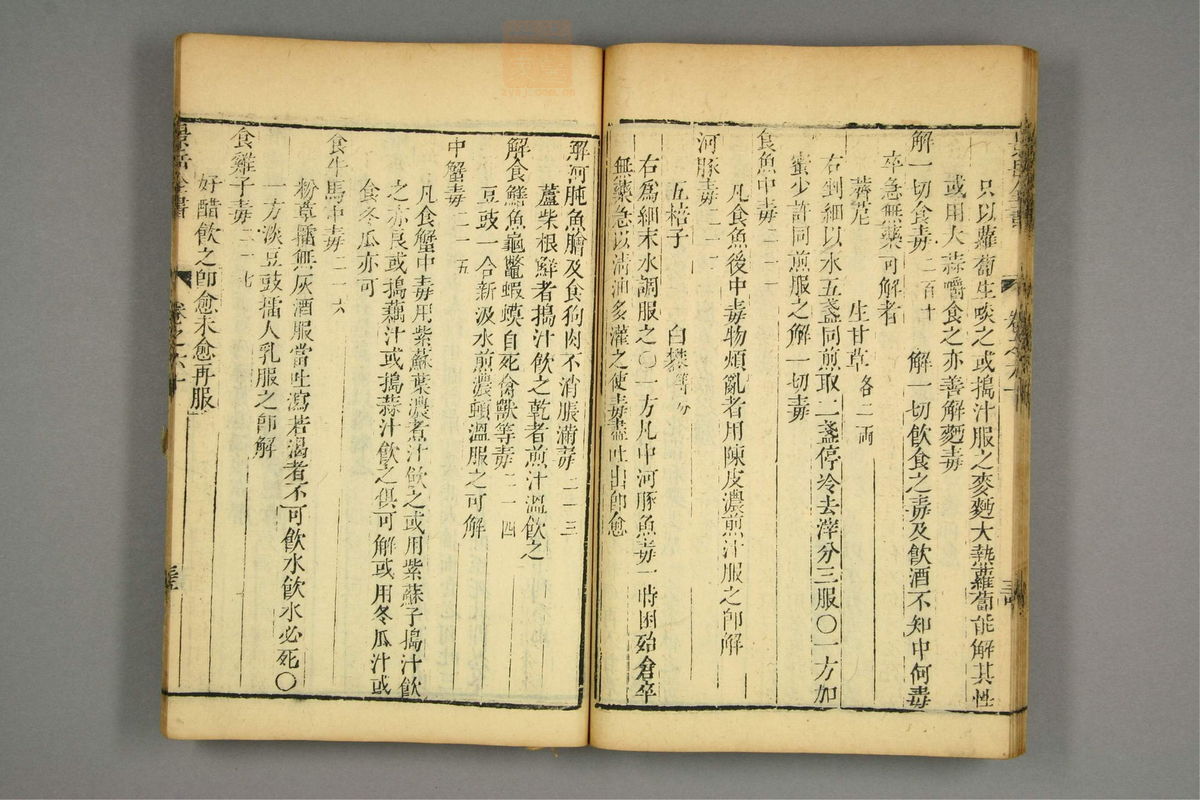 只以蘿蔔生啖之或搗汁服之麥麪大熱蘿蔔能解其性
或用大蒜嚼食之亦善解麪毒
解一切食毒 二百十 解一切飲食之毒及飲酒不知中何毒
卒急無藥可解者
薺苨 生甘草各二両
右剉細以水五盞同煎取二盞停冷去滓分三服〇一方加
蜜少許同煎服之解一切毒
食魚中毒 二一一
凡食魚後中毒物煩亂者用陳皮濃煎汁服之即解
河豚毒 二一二
五棓子 白礬等分
右為細末水調服之〇一方凡中河豚魚毒一時困殆倉卒
無藥急以清油多灌之使毒盡吐出即愈
解河肫魚膾及食狗肉不消脹滿毒 二一三
蘆柴根鮮者搗汁飲之乾者煎汁溫飲之
解食鱔魚龜鼈蝦蟆自死禽獸等毒 二一四
豆豉一合新汲水煎濃頓溫服之可解
中蟹毒 二一五
凡食蟹中毒用紫蘇葉濃煮汁飲之或用紫蘇子搗汁飲
之亦良或搗藕汁或搗蒜汁飲之俱可解或用冬瓜汁或
食冬瓜亦可
食牛馬中毒 二一六
粉草擂無灰酒服當吐瀉若渴者不可飲水飲水必死〇
一方淡豆豉擂人乳服之即解
食雞子毒 二一七
好醋飲之即愈未愈再服